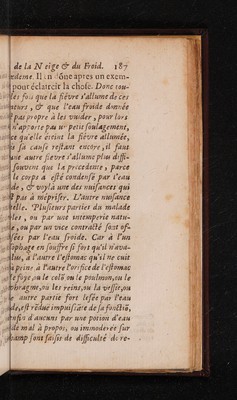 de la Neige & du Froid. 187
edeme. Il en dõne apres un exem-
pour éclaircir la chose. Donc tou-
les fois que la fiévre s'allume de ces
meurs, & que l'eau froide donnée
st pas propre à les vuider, pour lors
n'apporte pas un petit soulagement,
ce qu'elle éteint la fiévre allumée,
is sa cause restant encore, il faut
une autre fiévre s'allume plus diffi-
souvent que la precedente, parce
le corps a esté condensé par l'eau
ide, & voylà une des nuisances qui
st pas à mépriser. L'autre nuisance
elle. Plusieurs parties du malade
bles, ou par une intemperie natu-
e, ou par un vice contracté sont of-
sées par l'eau froide. Car à l'un
sophage en souffre si fort qu'il n'ava-
lus, à l'autre l'estomac qu'il ne cuit
à peine: à l'autre l'orifice de l'estomac
le foye, ou le colõ ou le poulmon, ou le
phragme, ou les reins, ou la vessie, ou
e autre partie fort lesée par l'eau
de, est rẽdue impuissãte de sa fonctiõ,
enfin d'aucuns par une potion d'eau
de mal à propos, ou immoderée sur
champ sont saisis de difficulté de re-